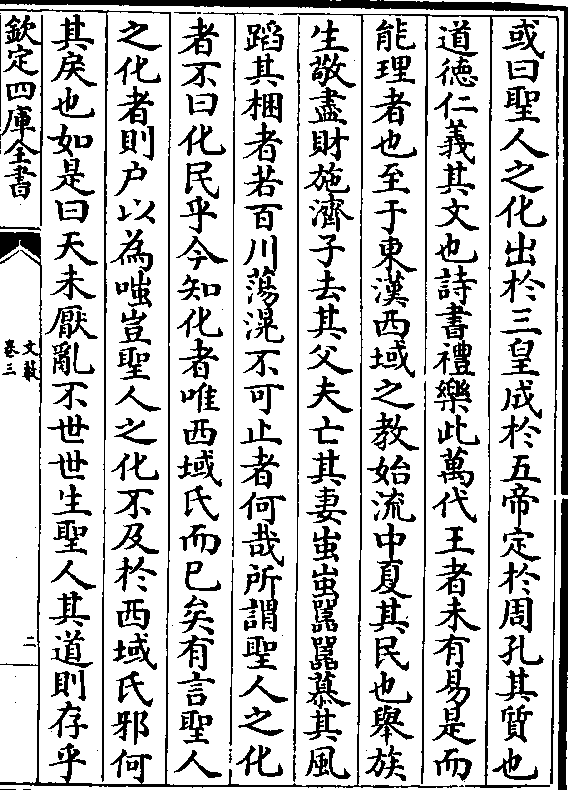 或曰聖人之化出於三皇成於五帝定於周孔其質也
道德仁義其文也詩書禮樂此萬代王者未有易是而
能理者也至于東漢西域之教始流中夏其民也舉族
生敬盡財施濟子去其父夫亡其妻蚩蚩嚚嚚慕其風
蹈其梱者若百川蕩滉不可止者何哉所謂聖人之化
者不曰化民乎今知化者唯西域氏而已矣有言聖人
之化者則户以為嗤豈聖人之化不及於西域氏邪何
其戾也如是曰天未厭亂不世世生聖人其道則存乎
欽定四庫全書
文藪
卷三
二